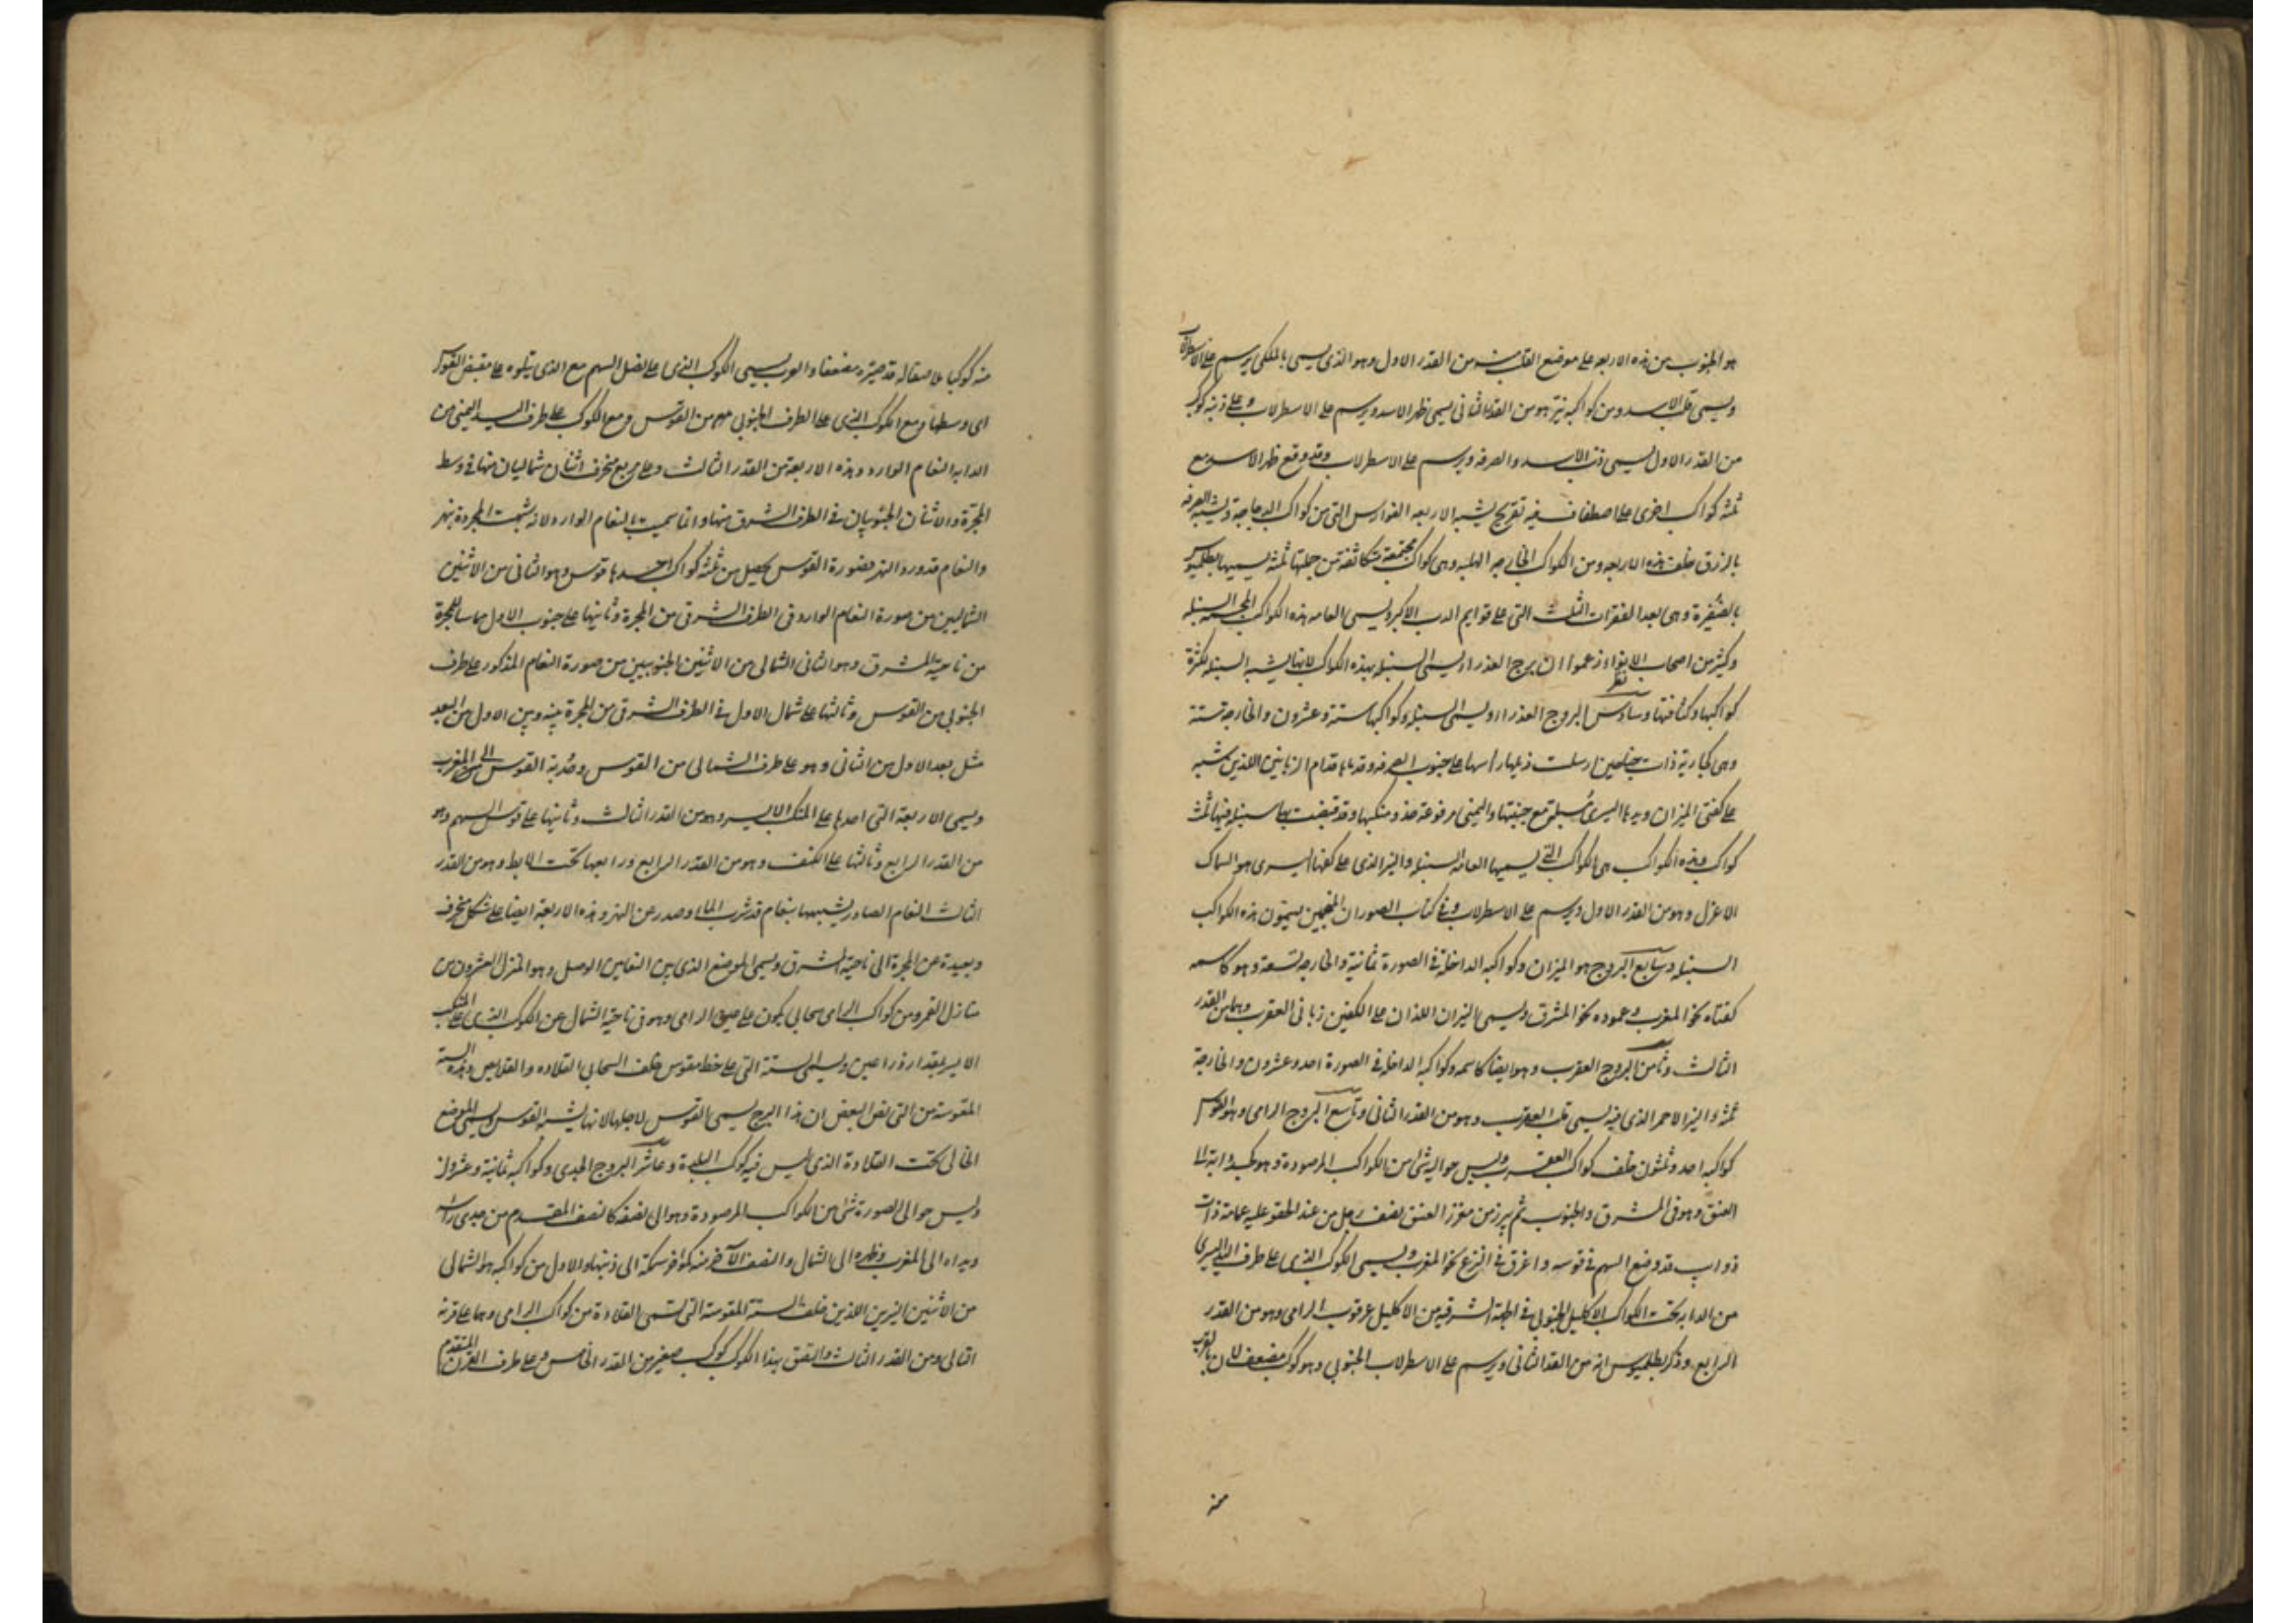 هو الجنوبى من هذه الاربعه على موضع القلب منه من القدر الاول وهو الذى يسمى بالملكى يرسم على الاسطرلاب
ويسمى قلب الاسد ومن كواكبه نير هو من القدر الثانى يسمى ظهر الاسد ويرسم على الاسطرلاب وعلى ذنبه كوكب
من القدر الاول يسمى ذنب الاسد والصرفه ويرسم على الاسطرلاب وقد وقع ظهر الاسد مع
ثلثه كواكب اخرى على اصطفاف فيه تقويج يشبه الاربعه الفوارس التى من كواكب الدجاجة
خلف هذه الاربعه ومن الكواكب الخارجه الهلبه وهى كواكب مجتمعة متكاثفة من جملتها ثلثه يسميها بطلميوس
بالضفيرة وهى بعد الفقرات الثلث التى على قوايم الدب الاكبر ويسمى العامه هذه الكواكب السنبله
وكثير من اصحاب الانواء زعموا ان برج العذراء يسمى السنبله بهذه الكواكب لانها يشبه السنبله لكثرة
كواكبها وكثافتها وسادس البروج العذراء ويسمى السنبله وكواكبها ستة وعشرون والخارجه ستة
وهى كجارية ذات جناحين ارسلت ذيلها راسها على جنوب الصرفه وقدماها قدام الزبانين اللذين
على كفتى الميزان ويدها اليسرى مسبلة مع جنبتها واليمنى مرفوعة حذو منكبها وقد قبضت بها سنبله فيها ثلث
كواكب وهذه الكواكب هى الكواكب التى يسميها العامه السنبله والنير الذى على كفها اليسرى هو السماك
الاعزل وهو من القدر الاول ويرسم على الاسطرلاب وفى كتاب الصور ان المنجمين يسمون هذه الكواكب
السنبله وسابع البروج هو الميزان وكواكبه الداخله فى الصورة ثمانية والخارجه تسعة وهو كاسمه
كفتاه نحو المغرب وعموده نحو المشرق ويسمى النيران اللذان على الكفتين زبانى العقرب وهما من القدر
الثالث وثامن البروج العقرب وهو ايضا كاسمه وكواكبه الداخله فى الصورة احد وعشرون والخارجة
ثلثه والنير الاحمر الذى فيه يسمى قلب العقرب وهو من القدر الثانى وتاسع البروج الرامى وهو القوس
كواكبه احد وثلثون خلف كواكب العقرب وليس حواليه شئ من الكواكب المرصودة وهو كجسد دابة الى
العنق وهو فى المشرق والجنوب ثم يبرز من مغرز العنق نصف رجل من عند الحقو عليه عمامة ذات
ذوايب قد وضع السهم فى قوسه واغرق فى النزع نحو المغرب ويسمى الكوكب الذى على طرف اليد اليسرى
من الدابه تحت الكواكب الاكليل الجنوبى فى الجهة الشرقيه من الاكليل عرقوب الرامى وهو من القدر
الرابع وذكر بطلميوس انه من القدر الثانى ويرسم على الاسطرلاب الجنوبى وهو كوكب مضعف لان بالقرب
منه كوكبا ملاصقا له قد صيره مضعفا والعرب يسمى الكوكب الذى على نصل السهم مع الذى يتلوه على مقبض القوس
اى وسطها ومع الكوكب الذى على الطرف الجنوبى من القوس ومع الكوكب على طرف اليد اليمنى من
الدابه النعام الوارد وهذه الاربعة من القدر الثالث وعلى مربع منحرف اثنان شماليان منها فى وسط
المجرة والاثنان الجنوبيان فى الطرف الشرقى منها وانما سميت بالنعام الوارد لانه شبهت المجرة بنهر
والنعام قد ورد النهر فصورة القوس يحصل من ثلثة كواكب احدها قوس وهو الثانى من الاثنين
الشماليين من صورة النعام الوارد فى الطرف الشرقى من المجرة وثانيها على جنوب الاول مماسا للمجرة
من ناحية المشرق وهو الثانى الشمالى من الاثنين الجنوبيين من صورة النعام المذكور على طرف
الجنوبى من القوس وثالثها على شمال الاول فى الطرف الشرقى من المجرة بينه وبين الاول من البعد
مثل بعد الاول من الثانى وهو على طرف الشمالى من القوس وحدبة القوس الى المغرب
ويسمى الاربعة التى احدها على المنكب الايسر وهو من القدر الثالث وثانيها على فوق السهم وهو
من القدر الرابع وثالثها على الكتف وهو من القدر الرابع ورابعها تحت الابط وهو من القدر
الثالث النعام الصادر يشبهها بنعام قد شرب الماء وصدر عن النهر وهذه الاربعة ايضا على شكل منحرف
وبعيدة عن المجرة الى ناحية المشرق ويسمى الموضع الذى بين النعامين الوصل وهو المنزل العشرون من
منازل القمر ومن كواكب الرامى سحابى يكون على عين الرامى وهو فى ناحية الشمال عن الكوكب الذى على المنكب
الايسر بمقدار ذراعين ويسمى الستة التى على خط مقوس خلف السحابى القلاده والقلايص وهذه الستة
المقوسة من التى ظن البعض ان هذا البرج يسمى القوس لاجلها لانها يشبه القوس ويسمى الموضع
الخالى تحت القلادة الذى ليس فيه كوكب البلدة وعاشر البروج الجدى وكواكبه ثمانية وعشرون
وليس حوالى الصورة شئ من الكواكب المرصودة وهو الى نصفه كالنصف المقدم من جدى راسه
ويداه الى المغرب وظهره الى الشمال والنصف الآخر منه كمؤخر سمكة الى ذنبها والاول من كواكبه هو الشمالى
من الاثنين النيرين اللذين خلف الستة المقوسة التى تسمى القلادة من كواكب الرامى وهما على قرنه
التالى ومن القدر الثالث والتصق بهذا الكوكب كوكب صغير من القدر الخامس وعلى طرف القرن المتقدم